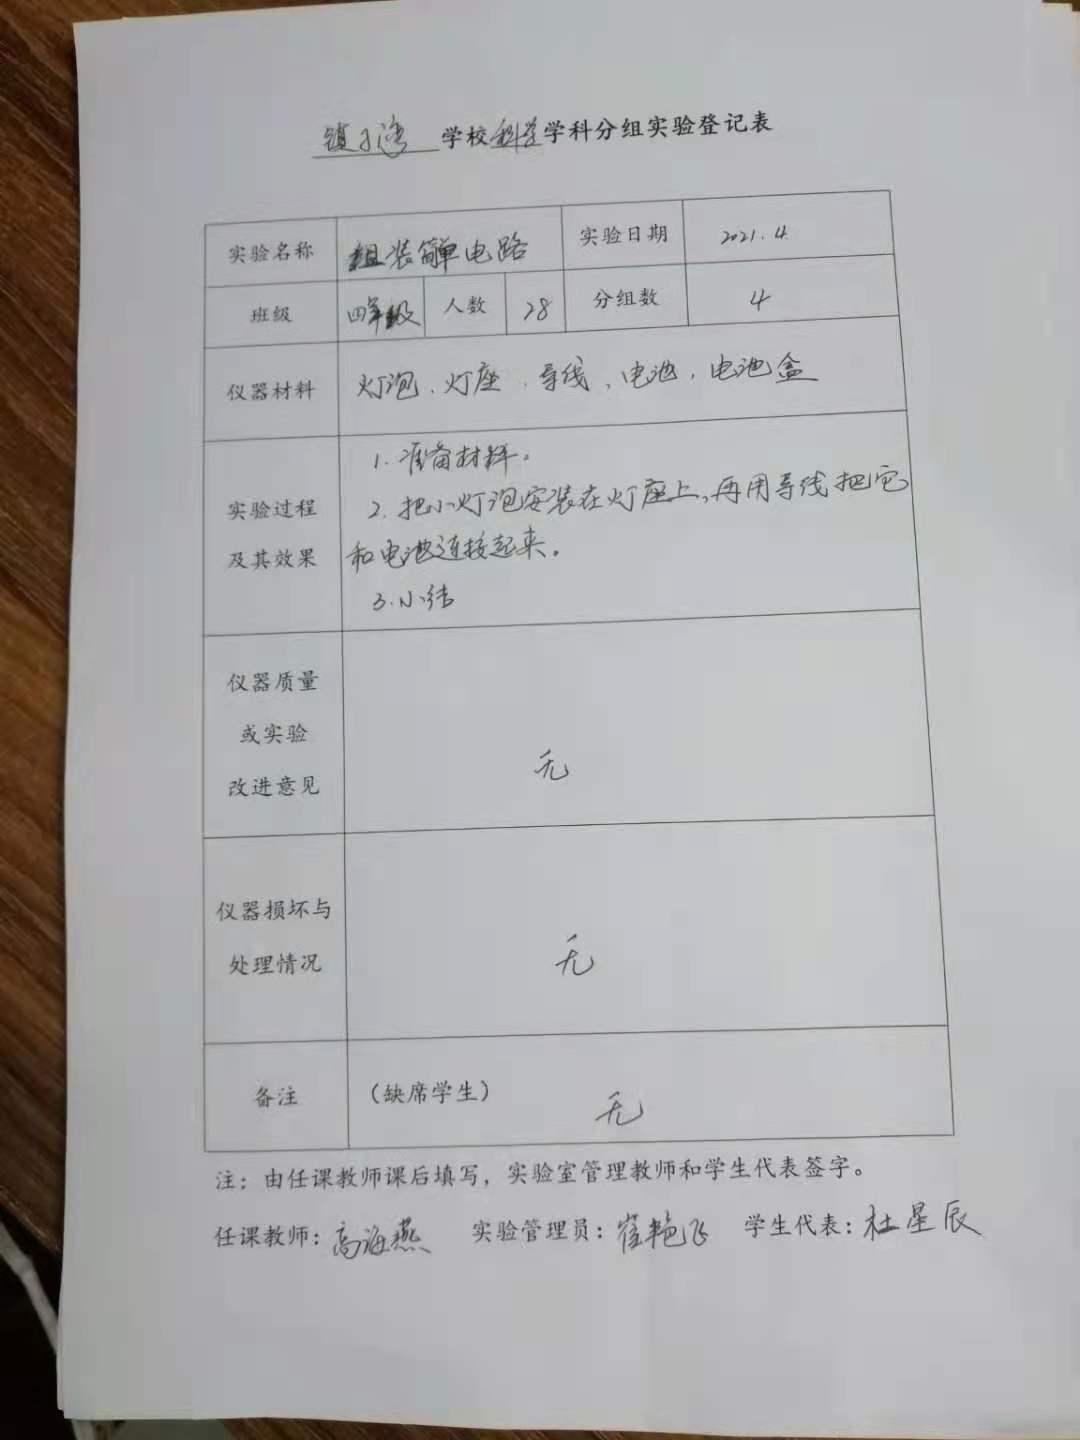 镇子湾学校科学学科分组实验登记表
实验名称 组装简单电路 实验日期 2021.4.
班级 四年级 人数 28 分组数 4
仪器材料 灯泡、灯座、导线、电池、电池盒
实验过程及其效果
1.准备材料。
2.把小灯泡安装在灯座上,再用导线把它
和电池连接起来。
3.小结
仪器质量
或实验
改进意见
无
仪器损坏与
处理情况
无
备注 (缺席学生) 无
注：由任课教师课后填写，实验室管理教师和学生代表签字。
任课教师：高海燕 实验管理员：崔艳飞 学生代表：杜星辰